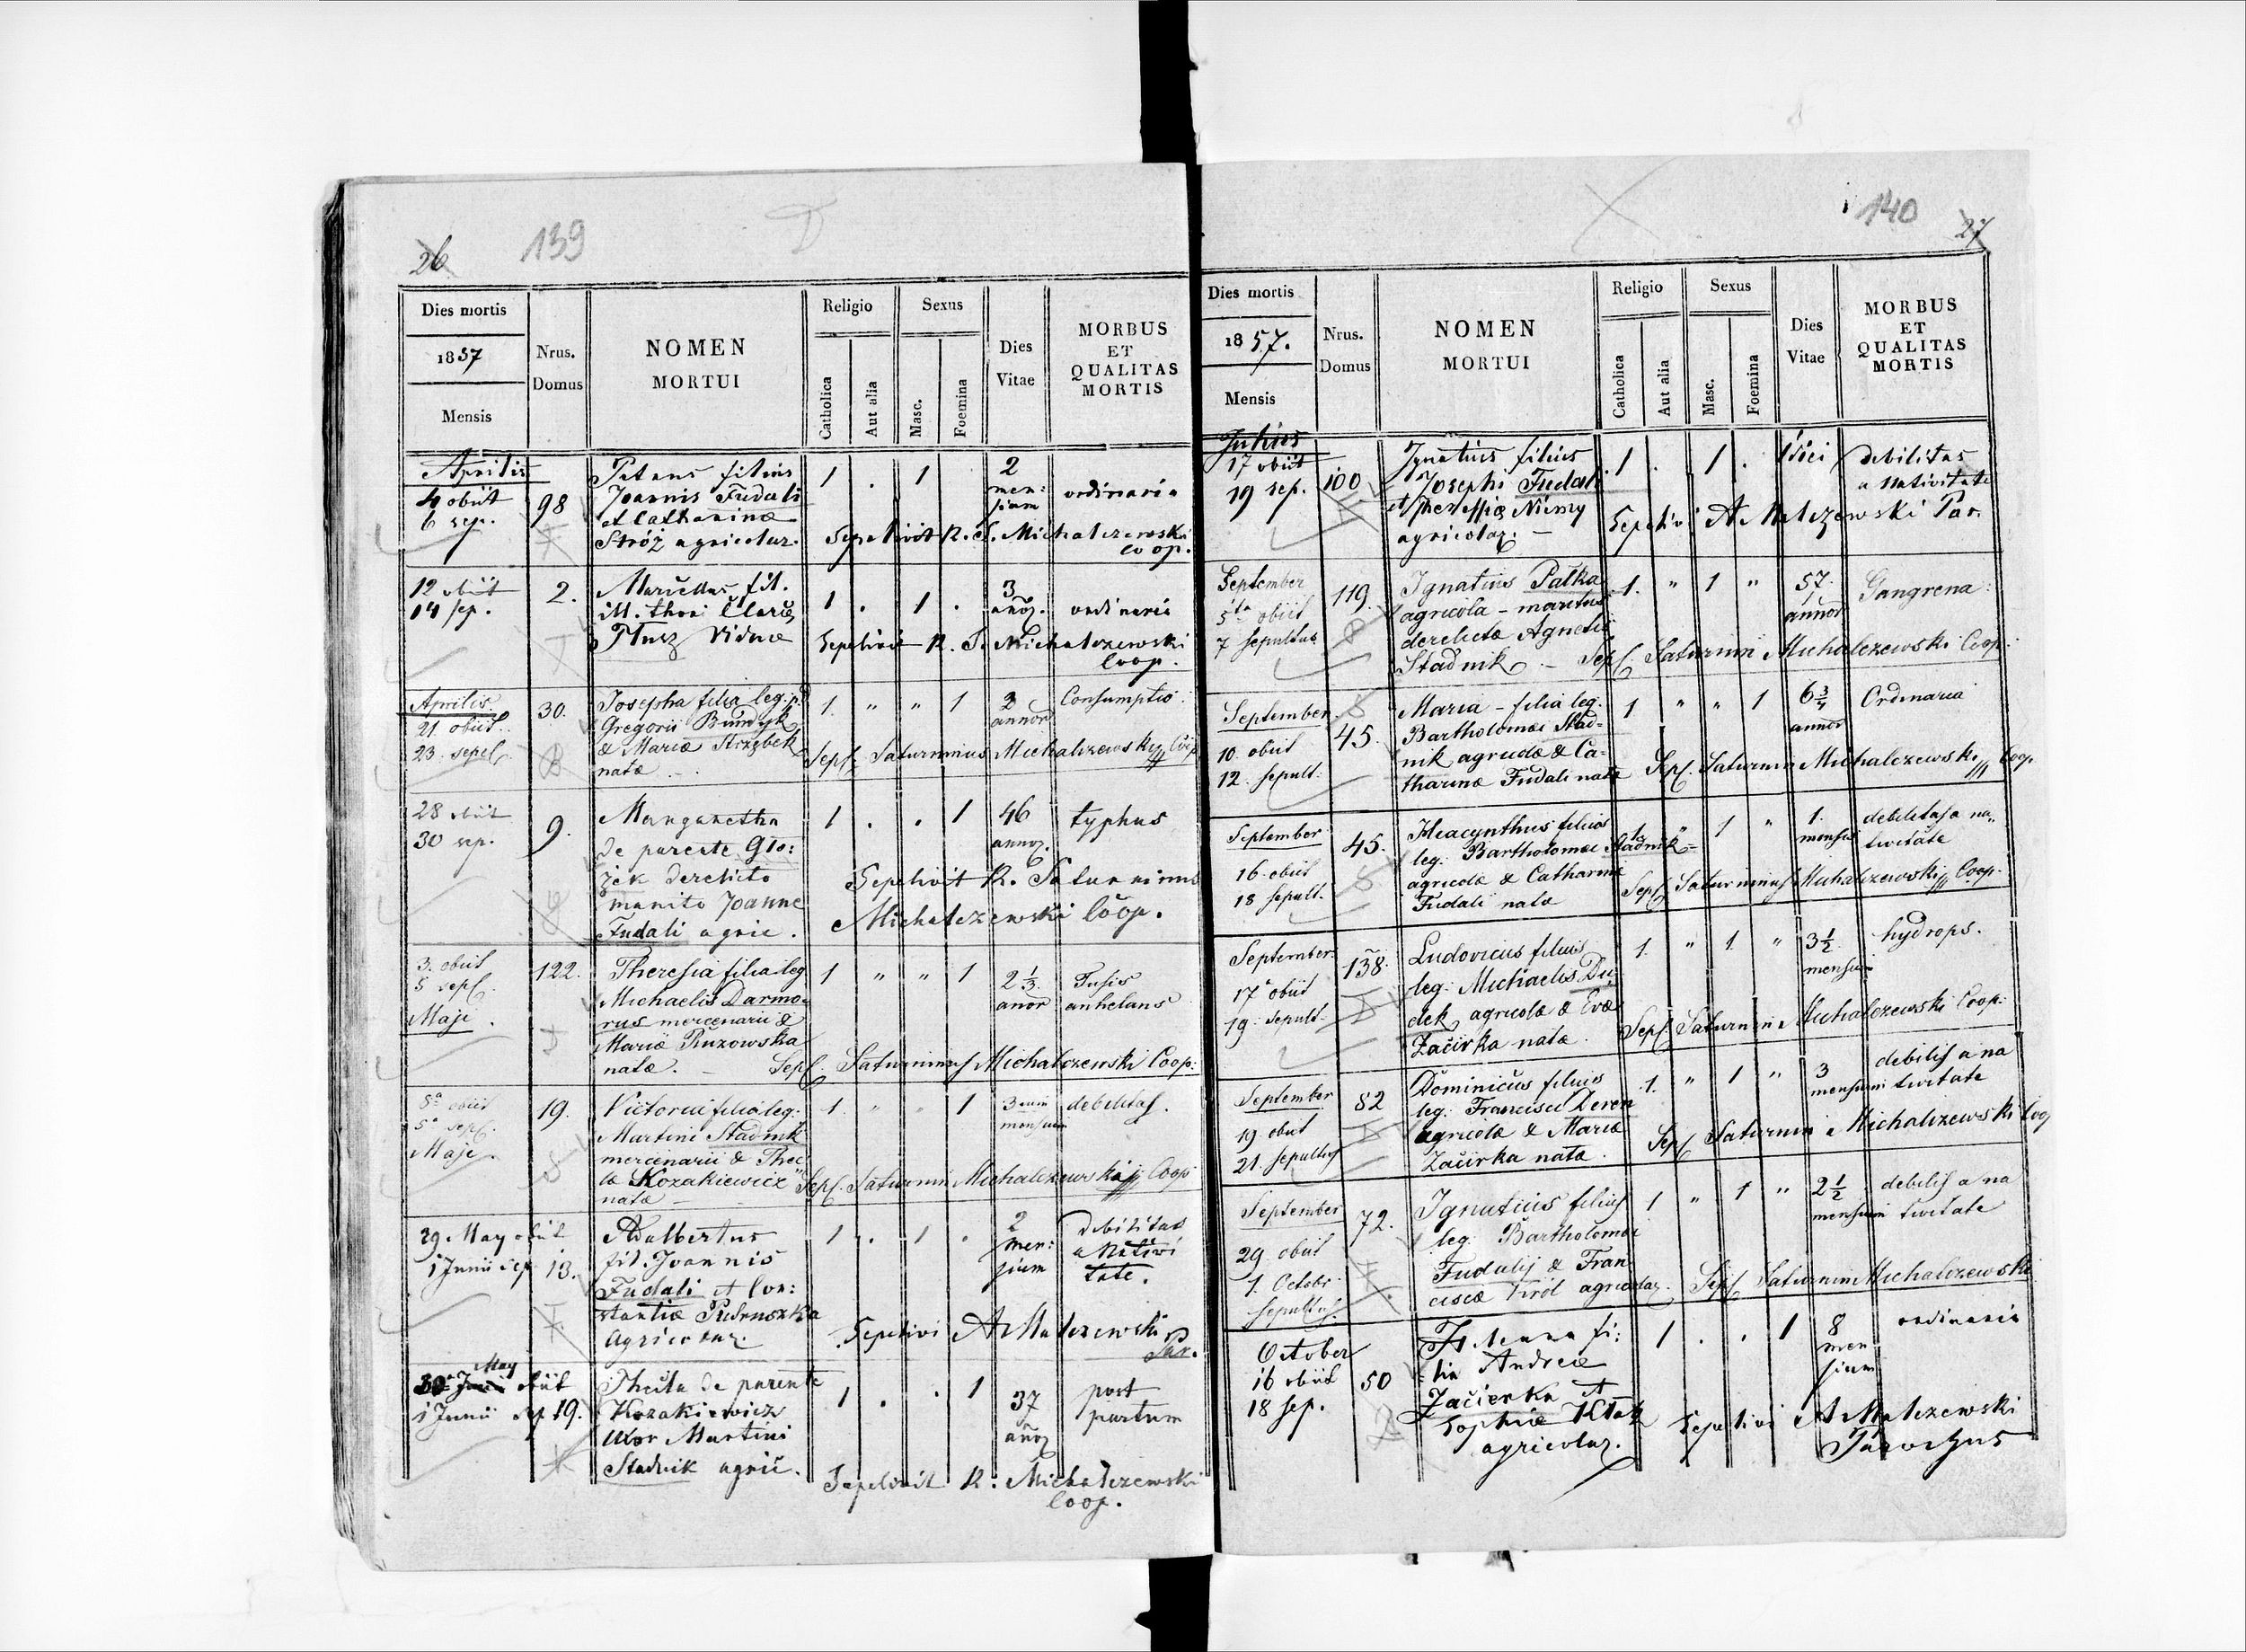 26
139
Dies mortis
1857
Mensis
Nrus.
Domus
NOMEN
MORTUI
Religio
Catholica
Aut alia
Sexus
Masc.
Foemina
Dies
Vitae
MORBUS
ET
QUALITAS
MORTIS
Aprilis
4 obiit
6 sep.
98
filius
Joannis Fudali
et Catharinæ
Stróż agricolar.
1 . 1
2
men:
sium
ordinaria
Sepelivit R. S. Michalczewski
coop.
12 obiit
14 sep.
2.
Marcellus fil.
ill. thori Claræ
Viduæ
1 . 1 .
3
añoz.
ordinaria
Sepelivit R. S. Michalczewski
Coop.
Aprilis.
21. obiit.
23. sepel.
30.
Josepha filia leg.
Gregorii
& Mariæ Strzębek
natæ
1. " " 1
3
annor
Consumptio
Sepel. Saturninus Michalczewski Coop
28 obiit
30 sep.
9.
Margaretha
de parente Glo:
zek derelicto
marito Joanne
Fudali agric.
1 . . 1
46
annoz.
typhus
Sepelivit R. Saturninus
Michalczewski Coop.
3. obiit
5 sepl.
Maji.
122.
Theresia filia leg
Michaelis Darmo-
rus mercenarii &
Mariæ Ruzowska
natæ.
1 " " 1
2 1/3
anor
Tusis
anhelans
Sepl. Saturninus Michalczewski Coop:
5ª sepl.
Maji.
19.
Victoria filia leg:
Martini Stadnik
mercenarii & Thec
læ Kozakiewicz
natæ
1. " " 1
3
mensium
debilitas.
Sepl. Saturnin Michalczewski Coop
29. May obiit
1 Junii sep.
13.
Adalbertus
fil. Joannis
Fudali et Con:
stantiæ
Agricolar.
1 . 1 .
2
men:
sium
debilitas
a Nativi
tate.
Sepelivi A Malczewski
Par.
May
30 obiit
1 Junii sep
19.
Thecla de parente
Kozakiewicz
uxor Martini
Stadnik agric.
1 . . 1
37
añoz
post
partum
Sepelivit R. Michalczewski
Coop.
140
27
Dies mortis
1857.
Mensis
Nrus.
Domus
NOMEN
MORTUI
Religio
Catholica
Aut alia
Sexus
Masc.
Foemina
Dies
Vitae
MORBUS
ET
QUALITAS
MORTIS
Julius
17 obiit
19 sep.
100
Ignatius filius
Josephi Fudali
et Niemy
agricolar.
1 . 1 .
debilitas
a Nativitate
Sepelivi A Malczewski Par.
September
5ta obiit
7 sepultus
119.
Ignatius Pałka
agricola - maritus
derelictæ Agnetis
Stadnik
1. " 1 "
57.
annor
Gangrena.
Sepl. Saturnin Michalczewski Coop:
September.
10. obiit
12. sepult.
45.
Maria - filia leg.
Bartholomæi Stad-
nik agricolæ & Ca-
tharinæ Fudali natæ
1 " " 1
6 3/4
annor
Ordinaria
Sepl. Saturnin Michalczewski Coop
September
16. obiit
18 sepult.
45.
Hiacynthus filius
leg. Bartholomæi Stadnik
agricolæ & Catharinæ
Fudali natæ
1. " 1 "
1.
mensis
debilitas a na,,
tivitate
Sepl. Saturninus Michalczewski Coop.
September.
17ª obiit
19. sepult.
138.
Ludovicus filius
leg. Michaelis Du
dek agricolæ & Evæ
Zaċirka natæ.
1. " 1 "
3 1/2
mensium
hydrops.
Sepl. Saturnin Michalczewski Coop.
September
19 obiit
21. sepultus
82
Dominicus filius
leg. Francisci Deren
agricolæ & Mariæ
Zaċirka natæ.
1. " 1 "
3
mensium
debilis a na
tivitate
Sepl Saturnin Michalczewski Coop
September
29. obiit
1. Octobr.
sepultus.
72.
Ignatius filius
leg. Bartholomæi
Fudalij & Fran
ciscæ Tirol agricolar.
1 " 1 "
2 1/2
mensium
debilis a na
tivitate
Sepl Saturnin Michalczewski
October
16 obiit
18 sep.
50
fi:
lia Andreæ
Zaċierka et
Sophiæ Kłak
agricolar.
1 . . 1
8
men
sium
ordinaria
Sepelivi A Malczewski
Parochus